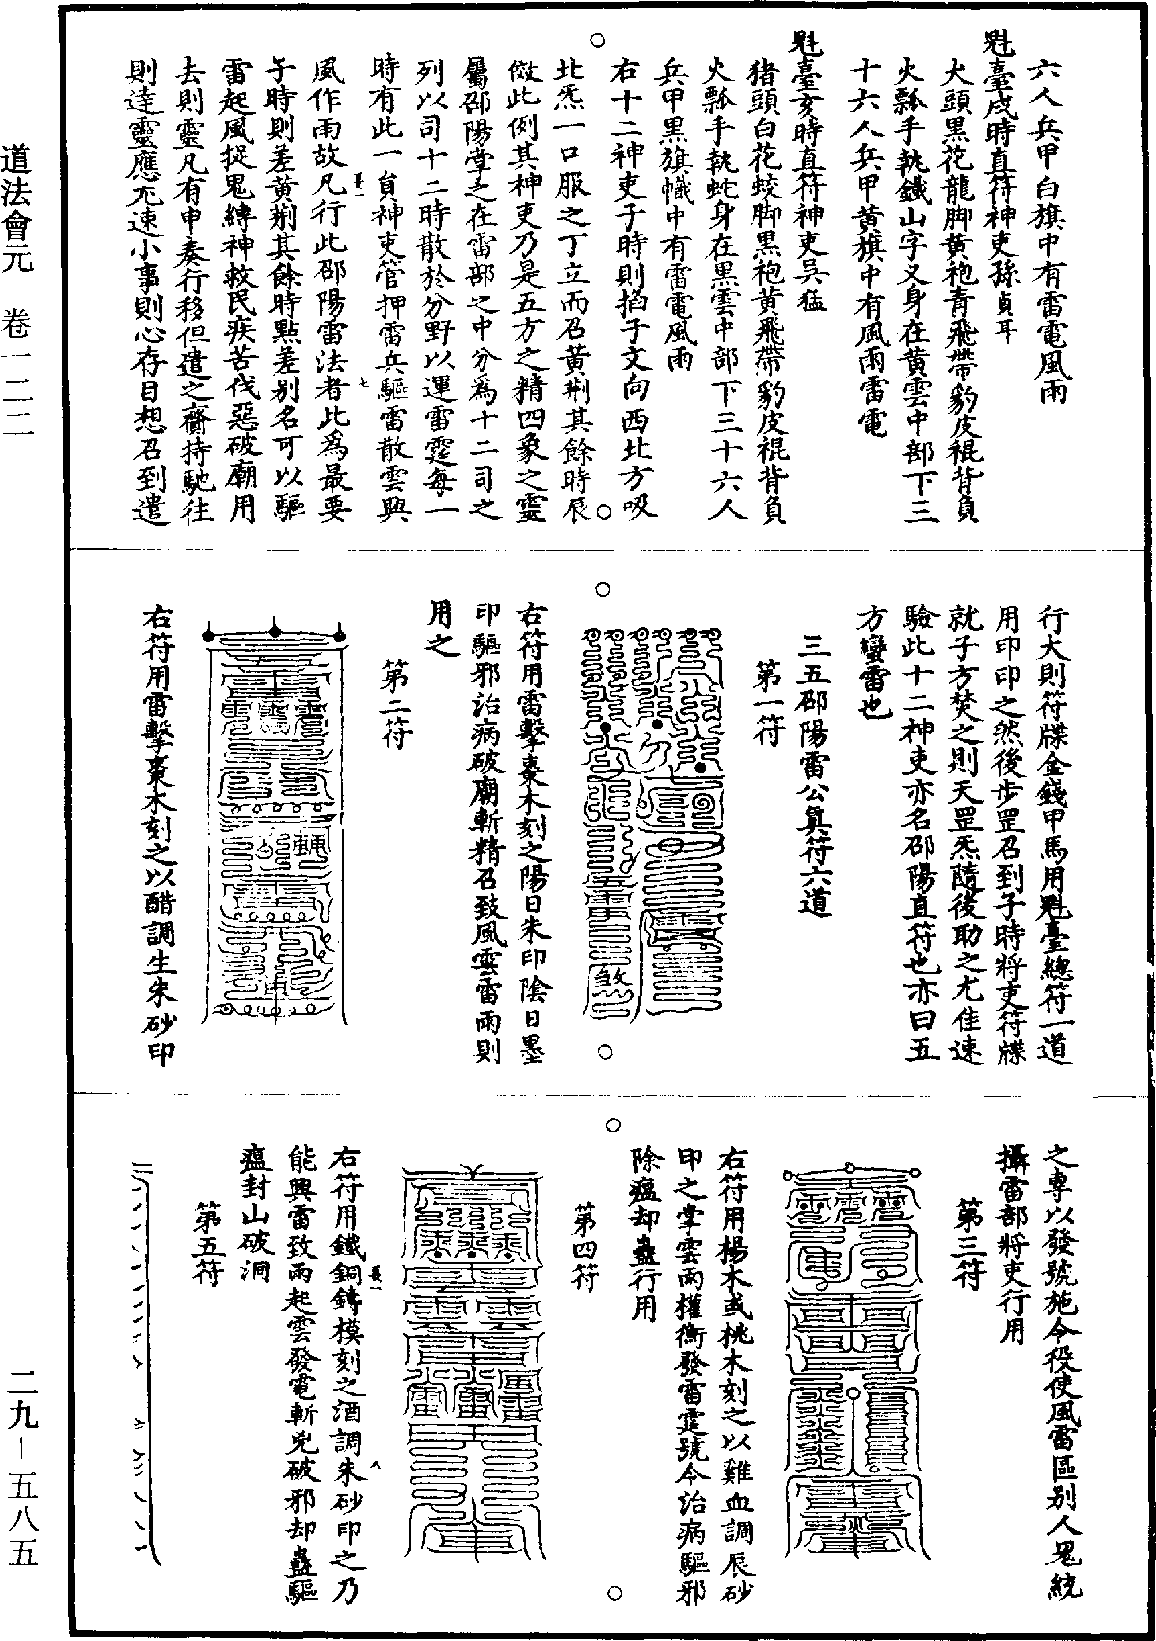 道法會元　卷一二二
二九－五八五
六人兵甲白旗中有雷電風雨
魁臺戌時直符神吏孫貞耳
犬頭黑花龍脚黃袍青飛帶豹皮裩背負
火瓢手執鐵山字叉身在黃雲中部下三
十六人兵甲黃旗中有風雨雷電
魁臺亥時直符神吏吳猛
猪頭白花蛟脚黑袍黃飛帶豹皮裩背負
火瓢手執蛇身在黑雲中部下三十六人
兵甲黑旗幟中有雷電風雨
右十二神吏子時則掐子文向西北方吸
北炁一口服之丁立而召黃荊其餘時辰
倣此例其神吏乃是五方之精四象之靈
屬邵陽掌之在雷部之中分爲十二司之
列以司十二時散於分野以運雷霆每一
時有此一員神吏管押雷兵驅雷散雲興
風作雨故凡行此邵陽雷法者此爲最要
子時則差黃荊其餘時點差别名可以驅
雷起風捉鬼縛神救民疾苦伐惡破廟用
去則靈凡有申奏行移但遣之齎持馳往
則達靈應尤速小事則心存目想召到遣
行大則符牒金錢甲馬用魁臺總符一道
用印印之然後步罡召到子時將吏符牒
就子方焚之則天罡炁隨後助之尤佳速
驗此十二神吏亦名邵陽直符也亦曰五
方蠻雷也
三五邵陽雷公眞符六道
第一符
右符用雷擊棗木刻之陽日朱印陰日墨
印驅邪治病破廟斬精召致風雲雷雨則
用之
第二符
右符用雷擊棗木刻之以醋調生朱砂印
之專以發號施令役使風雷區别人鬼統
攝雷部將吏行用
第三符
右符用楊木或桃木刻之以雞血調辰砂
印之掌雲雨權衡發雷霆號令治病驅邪
除瘟却蠱行用
第四符
右符用鐵銅鑄模刻之酒調朱砂印之乃
能興雷致雨起雲發電斬兇破邪却蠱驅
瘟封山破洞
第五符